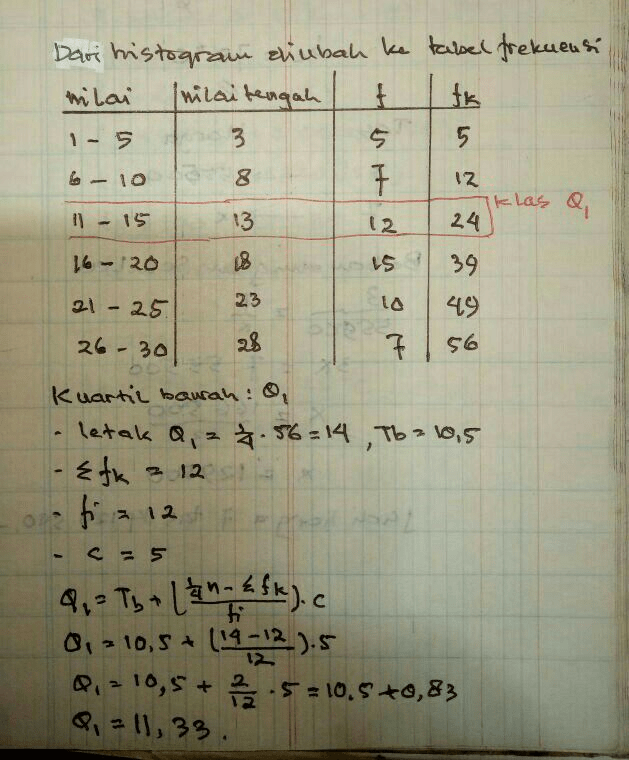 Dari histogram diubah ke tabel frekuensi
nilai nilai tengah f fk
1 - 5 3 5 5
6 - 10 8 7 12
11 - 15 13 12 24 klas Q₁
16 - 20 18 15 39
21 - 25 23 10 49
26 - 30 28 7 56
Kuartil bawah : Q₁
- letak Q₁ = 1/4 . 56 = 14 , Tb = 10,5
- Σfk = 12
- fi = 12
- c = 5
Q₁ = Tb + (1/4 n - Σfk / fi) . c
Q₁ = 10,5 + (14 - 12 / 12) . 5
Q₁ = 10,5 + 2/12 . 5 = 10.5 + 0,83
Q₁ = 11, 33 .